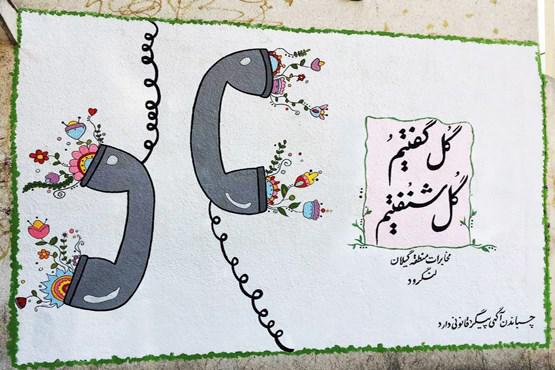 گل گفتیمُ
گُل شنُفتیم
مخابرات منطقه گیلان
لنگرود
چسباندن آگهی پیگرد قانونی دارد